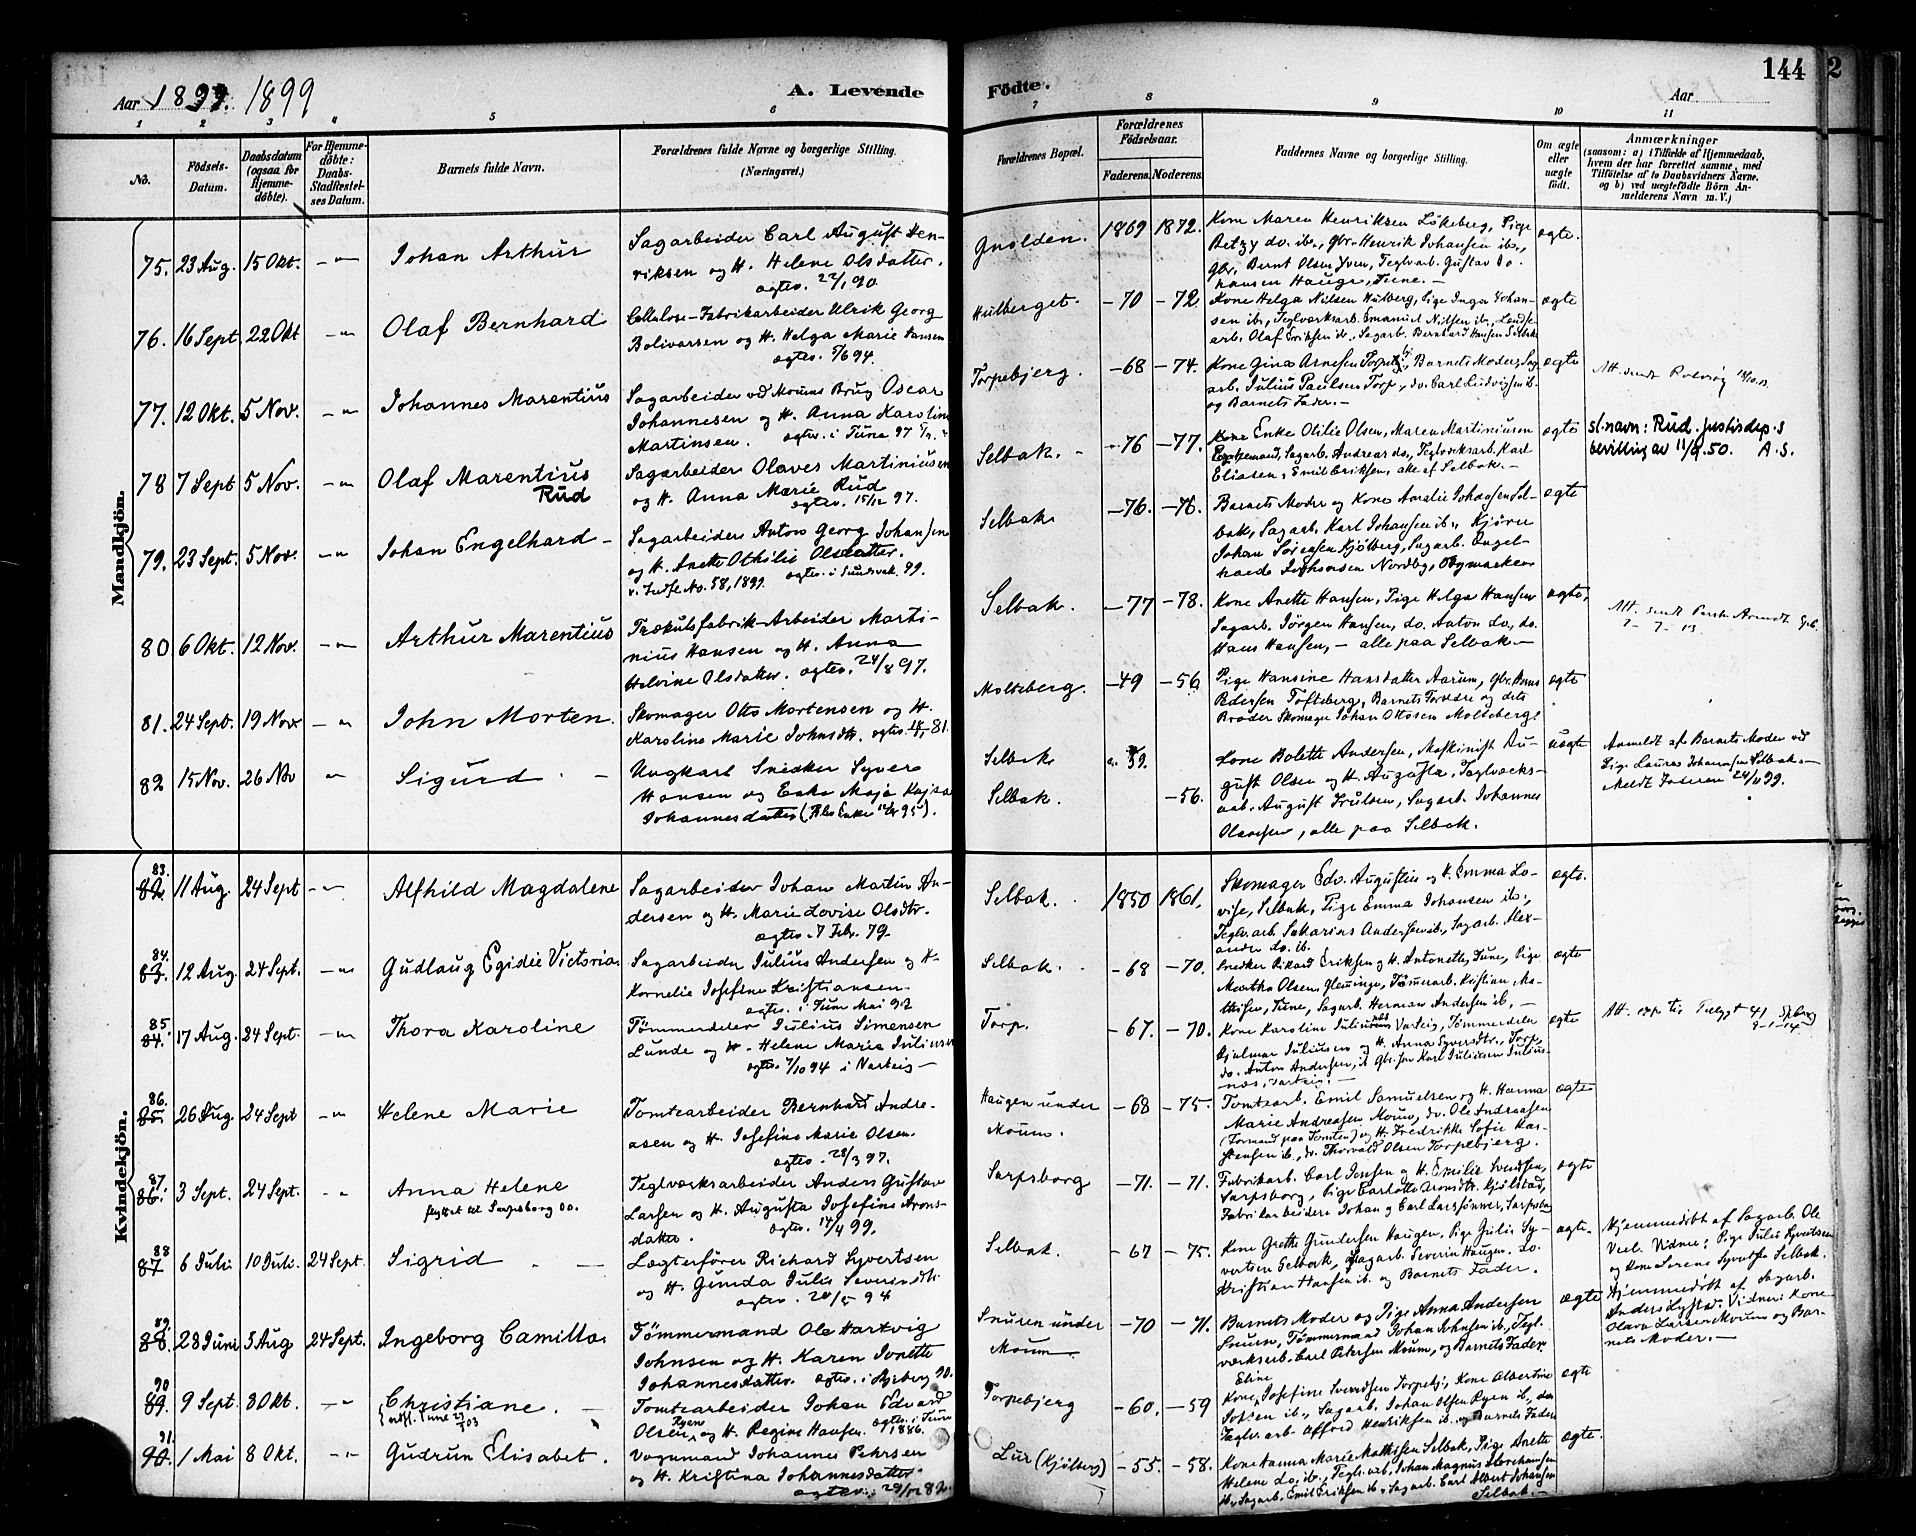 Aar 1899. 1899
A. Levende
Fødte.
144
2
Aar
1 2 3 4 5 6
7 8 9 10 11
No.
Fødsels-Datum.
Daabsdatum (ogsaa for Hjemme-døbte).
For Hjemme-døbte: Daabs-Stadfæstel-ses Datum.
Barnets fulde Navn.
Forældrenes fulde Navne og borgerlige Stilling. (Næringsvei.)
Forældrenes Bopæl.
Forældrenes Fødselsaar.
Faderens. Moderens.
Faddernes Navne og borgerlige Stilling.
Om ægte eller uægte født.
Anmærkninger
(saasom: a) i Tilfælde af Hjemmedaab,
hvem der har forrettet samme, med
Tilføielse af to Daabsvidners Navne,
og b) ved uægtefødte Børn An-
melderens Navn m. V.)
Mandkjön.
75. 23 Aug. 15 Okt. -"- Johan Arthur
Sagarbeider Carl August Hen-
riksen og H. Helene Olsdatter.
ægtev. 27/1 90.
Gnolden. 1869 1872.
Kone Maren Henriksen Lökeberg, Pige
Betzy do. ib., Gbr. Henrik Johansen ib.,
Gbr. Bernt Olsen Yven, Teglv.arb. Gustav Jo-
hansen Hauge, Tune.-
ægte.
76. 16 Sept. 22 Okt -"- Olaf Bernhard
Cellulose-Fabrikarbeider Ulrik Georg
Bolivarsen og H. Helga Marie Hansen
ægtev. 94.
Hulberget. -70 -72.
Kone Helga Nilsen Hulberg, Pige Inga Johan-
sen ib., Teglværksarb. Emanuel Nilsen ib.,
arb. Olaf Eriksen do., Sagarb. Bernhard Hansen Selbak
ægte
77. 12 Okt. 5 Nov. -"- Johannes Marentius
Sagarbeider ved Moums Brug Oscar
Johannesen og H. Anna Karoline
Martinsen. ægtev. i Tune 97
Torpebjerg. -68 -74.
Kone Gina Arnesen Torpebj., Barnets Moder, Sag-
arb. Julius Paulsen Torp, do. Carl Ludvigsen ib.
og Barnets Fader.-
ægte
Att. sendt Rolvsøy
78 7 Sept 5 Nov. -"- Olaf Marentius
Rud
Sagarbeider Olaves Martiniusen
og H. Anna Marie Rud
ægtev. 15/12 97.
Selbak.- -76 -77.
Enke Otilie Olsen, Maren Martiniusen
Sagarb. Andreas do., Teglværksarb. Karl
Eliasen, Emil Eriksen, alle af Selbak.-
ægte
sl.navn: Rud. Justisdep.s
bevilling av 11/9.50. A.S.
79. 23 Sept. 5 Nov. -"- Johan Engelhard -
Sagarbeider Anton Georg Johansen
og H. Anette Othilie Olsdatter.
v. Indfr. No. 58, 1899. ægtev. i 99.
Selbak -76. -76.
Barnets Moder og Kone Amalie Johansen Sel-
bak, Sagarb. Karl Johansen ib., Kjörer
Johan Sørensen Kjölberg, Sagarb. Engel-
Johansen Nordby,
ægte
80 6 Okt. 12 Nov. -"- Arthur Marentius
Trækulsfabrik-Arbeider Marti-
nius Hansen og H. Anna
Helvine Olsdatter. ægtev. 24/8 97.
Selbak. -77 -78.
Kone Anette Hansen, Pige Helga Hansen
Sagarb. Jörgen Hansen, do. Anton do., do.
Hans Hansen, - alle paa Selbak.-
ægte,
Att. sendt
7-7-13.
81. 24 Sept. 19 Nov. -"- John Morten.
Skomager Otto Mortensen og H.
Karoline Marie Johnsdtr. ægtev. 81.
Molteberg. -49 -56
Pige Hansine Hansdatter Aarum, Gbr.
Pedersen Tofteberg, Barnets Forældre og dets
Broder Skomager Johan Ottosen Molteberg.
ægte
82 15 Nov. 26 Nov " Sigurd -
Ungkarl Snedker Syver
Hansen og Enke Maja Kajsa
Johannesdatter (Blev Enke 95).
Selbak 59.
Selbak. -56.
Kone Bolette Andersen, Maskinist Au-
gust Olsen og H. Augusta, Teglværks-
arb. August Trulsen, Sagarb. Johannes
Olavesen, alle paa Selbak.
uægte
Anmeldt af Barnets Moder ved
Pige Laura Johannesen Selbak.-
Meldt 24/11 99.
Kvindekjön.
83. 82. 11 Aug. 24 Sept -"- Alfhild Magdalene
Sagarbeider Johan Martin An-
dersen og H. Marie Lovise Olsdtr.
ægtev. 7 Feb. 79.
Selbak. 1850 1861.
Skomager Edv. Augustin og H. Emma Lo-
vise, Selbak, Pige Emma Johansen ib.,
Teglv.arb. Sakarias Andersen ib., Sagarb. Alex-
ander do. ib.
ægte.
84. 83. 12 Aug. 24 Sept. -"- Gudlaug Egidie Victoria
Sagarbeider Julius Andersen og H.
Kornelie Josefine Kristiansen
ægtev. i Tune Mai 92
Selbak. -68 -70.
Snedker Rikard Eriksen og H. Antonette, Tune, Pige
Martha Olsen, Glemminge, Tömmerarb. Kristian Ma-
thisen, Tune, Sagarb. Herman Andersen ib.,-
ægte
85. 84. 17 Aug. 24 Sept. -"- Thora Karoline
Tömmerdeler Julius Simensen
Lunde og H. Helene Marie Juliusen
ægtev. 7/10 94 i Varteig -
Torp. -67. -70.
Kone Karoline Juliusnæs Varteig, Tømmerdeler
Hjalmar Juliusen og H. Anna Syversdtr., Torp,
do. Anton Andersen, Gbr.sön Karl Juliusen Julius-
næs, Varteig.-
ægte
Att.
8-1-14.
86. 85 26 Aug. 24 Sept -"- Helene Marie
Tomtearbeider Bernhard Andre-
asen og H. Josefine Marie Olsen.
ægtev. 28/3 97.
Haugen under
Moum. -68 -75.
Tomtearb. Emil Samuelsen og H. Hanna
Marie Andreassen Moum, do. Ole Andreasen
(Formand paa Tomten) og H. Fredrikke Sofie Kar-
stensen ib., do. Thorvald Olsen Torpebjerg.
ægte
87. 86. 3 Sept. 24 Sept. -"- Anna Helene
flyttet til Sarpsborg 00.
Teglværksarbeider Anders Gustav
Larsen og H. Augusta Josefine Arons-
datter. ægtev. 99.
Sarpsborg -71. -71.
Fabrikarb. Carl Jensen og H. Emilie Svendsen,
Sarpsborg, Pige Carlotte Aronsdtr. Kjölstad,
Fabrikarbeidere Johan og Carl Larssönner, Sarpsborg
ægte
88 87 6 Juli. 10 Juli. 24 Sept. Sigrid -
Lægterförer Richard Syvertsen
og H. Gunda Julie Severinsdtr.
ægtev. 20/5 94
Selbak. -67 -75.
Kone Grethe Gundersen Haugen, Pige Julie Sy-
vertsen Selbak, Sagarb. Severin Haugen, do.
Kristian Hansen ib. og Barnets Fader.
ægte.
Hjemmedöbt af Sagarb. Ole
Vidner: Pige Julie Syvertsen
og Kone Serene Syvertsen Selbak.
89. 88. 28 Juni 3 Aug 24 Sept. Ingeborg Camilla.
Tömmermand Ole Hartvig
Johnsen og H. Karen Jonette
Johannesdatter. ægtev. i 90.
Snuren under
Moum -70 -71.
Barnets Moder og Pige Anna Andersen
Snuren, Tømmermand Johan Johnsen ib., Tegl-
værksarb. Carl Petersen Moum, og Barnets Fader.
ægte
Hjemmedöbt af Sagarb.
Anders Vidner: Kone
Olava Larsen Moum og Bar-
nets Moder.-
90 89. 9 Sept. 8 Okt. -"- Christiane. -
03
Tomtearbeider Johan Edvard
Olsen Ryen og H. Regine Hansen. ægtev. i Tune 1886.
Torpebjerg -60. -59
Kone Eline Josefine Svendsen Torpebj., Kone Albertine
ib., Sagarb. Johan Olsen Ryen ib., do.
Teglv.arb. Alfred Henriksen ib. og Barnets Fader
ægte
91 90. 1 Mai 8 Okt. -"- Gudrun Elisabet.
Vognmand Johannes Pehrsen
og H. Kristina Johannesdatter
ægtev. 82.
Lur (Kjölberg) -55. -58.
Kone Hanna Marie Mathisen Selbak, Pige Anette
Helene do. ib., Teglv.arb. Johan Magnus
ib., Sagarb. Emil Eriksen ib., Sagarb. Carl Albert Johansen
Selbak.-
ægte.